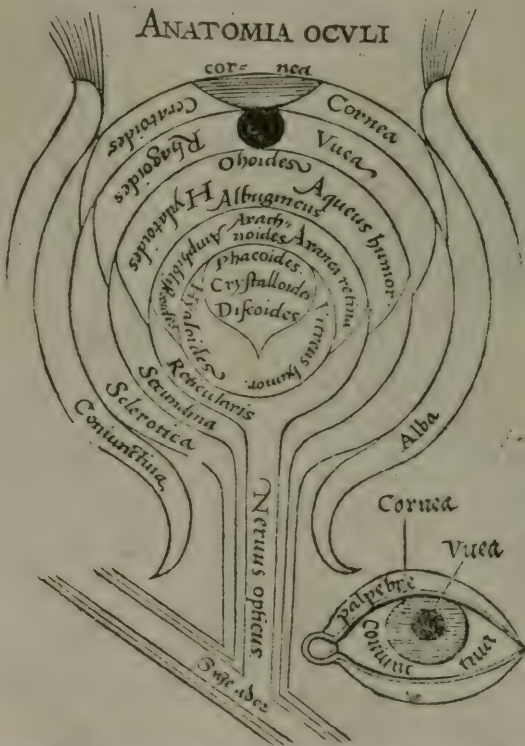 ANATOMIA OCVLI
cor= nea
Ceratoides
Cornea
Rhagoides
Vuea
Ohoides
Hydatoides
Albugineus
Aqueus humor
Arach=
noides
Aranea retina
Phacoides.
Crystalloides
Discoides
Hyaloides
Vitreus humor.
Reticularis
Secundina
Sclerotica
Coniunctiua
Alba
Neruus opticus
Cornea
Vuea
palpebre
Coniunc
tiua